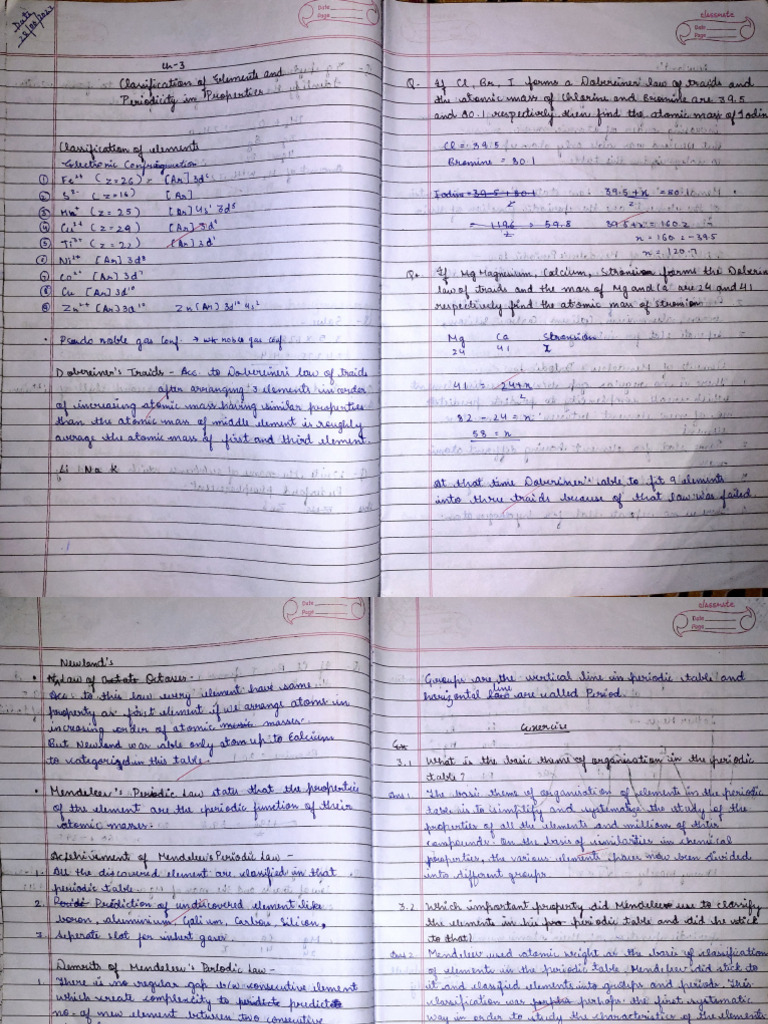 Date
Page
Ch-3
Classification of Elements and
Periodicity in Properties
Classification of elements
Electronic Configuration
① Fe²⁺ (z=26) = [Ar] 3d⁶
② S²⁻ (z=16) [Ar]
③ Mn⁺ (z=25) [Ar] 4s¹ 3d⁵
④ (z=29) [Ar] 3d⁹
⑤ (z=22) [Ar] 3d¹
Ni²⁺ [Ar] 3d⁸
Co²⁺ [Ar] 3d⁷
⑧ Cu [Ar] 3d¹⁰
⑨ Zn²⁺ [Ar] 3d¹⁰ Zn [Ar] 3d¹⁰ 4s²
• Pseudo noble gas conf. → noble gas conf
Dobereiner's Traids - Acc. to Dobereiner's law of traids
after arranging 3 elements in order
of increasing atomic mass having similar properties
than the atomic mass of middle element is roughly
average the atomic mass of first and third element.
Li Na K
classmate
Date
Page
Q- If Cl, Br, I forms a Dobereiner law of traids and
the atomic mass of Chlorine and Bromine are 39.5
and 80.1 respectively then find the atomic mass of Iodin
Cl = 39.5
Bromine = 80.1
Iodin = 39.5 + 80.1 39.5 + x = 80.1
2 2
= 1196 = 59.8 39.5 + x = 160.2
2 x = 160.2 - 39.5
x = 120.7
Q. If Mg Magnesium, Calcium, forms the Doberin
law of traids and the mass of Mg and Ca are 24 and 41
respectively find the atomic mass of
Mg Ca
24 41
41 = 24 + x
2
82 - 24 = x
58 = x
At that time Dobereiner's able to fit 9 elements
into three traids because of that law was failed.
Date
Page
Newland's
• Law of Octaves -
Acc. to this law every element have same
property as first element if we arrange atoms in
incresing order of atomic masses.
But Newland was able only atom up to Calcium
to categorized in this table.
• Mendeleev's Periodic Law states that the properties
of the element are the periodic function of their
atomic masses.
Achivement of Mendeleev's Periodic Law -
1. All the discovered element are classified in that
periodic table.
2. Prediction of undiscovered element like
boron, aluminium, Galium, Carbon, Silicon,
Seperate slot for inhert gases.
Demerits of Mendeleev's Periodic Law -
1. There is no regular gap b/w consecutive element
which create complencity to predict
no. of new element between two consecutive
classmate
Date
Page
Groups are the vertical line in periodic table and
line
horizontal are called Period.
Exercise
Ex
3.1 What is the basic theme of organisation in the periodic
table?
Ans 1 The basic theme of organisation of elements in the periodic
table is to simplify and systematize the study of the
properties of all the elements and millions of their
compounds. On the basis of similarities in chemical
properties, the various elements have now been divided
into different groups.
3.2 Which important property did Mendeleev use to classify
the elements in his periodic table and did he stick
to that?
Ans 2 Mendeleev used atomic weight as the basis of classification
of elements in the periodic table. Mendeleev did stick to
it and classified elements into groups and periods. This
classification was perhaps the first systematic
way in order to study the characteristics of the elements